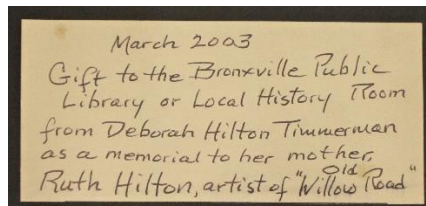 March 2003
Gift to the Bronxville Public
Library or Local History Room
from Deborah Hilton Timmerman
as a memorial to her mother,
Ruth Hilton, artist of "Willow Old Road"